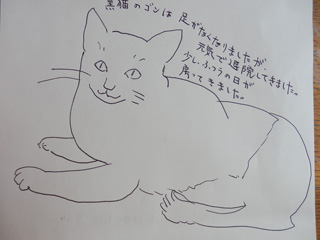 黒猫のゴンは 足がなくなりましたが
元気で退院してきました。
少し、ふつうの日が
戻ってきました。